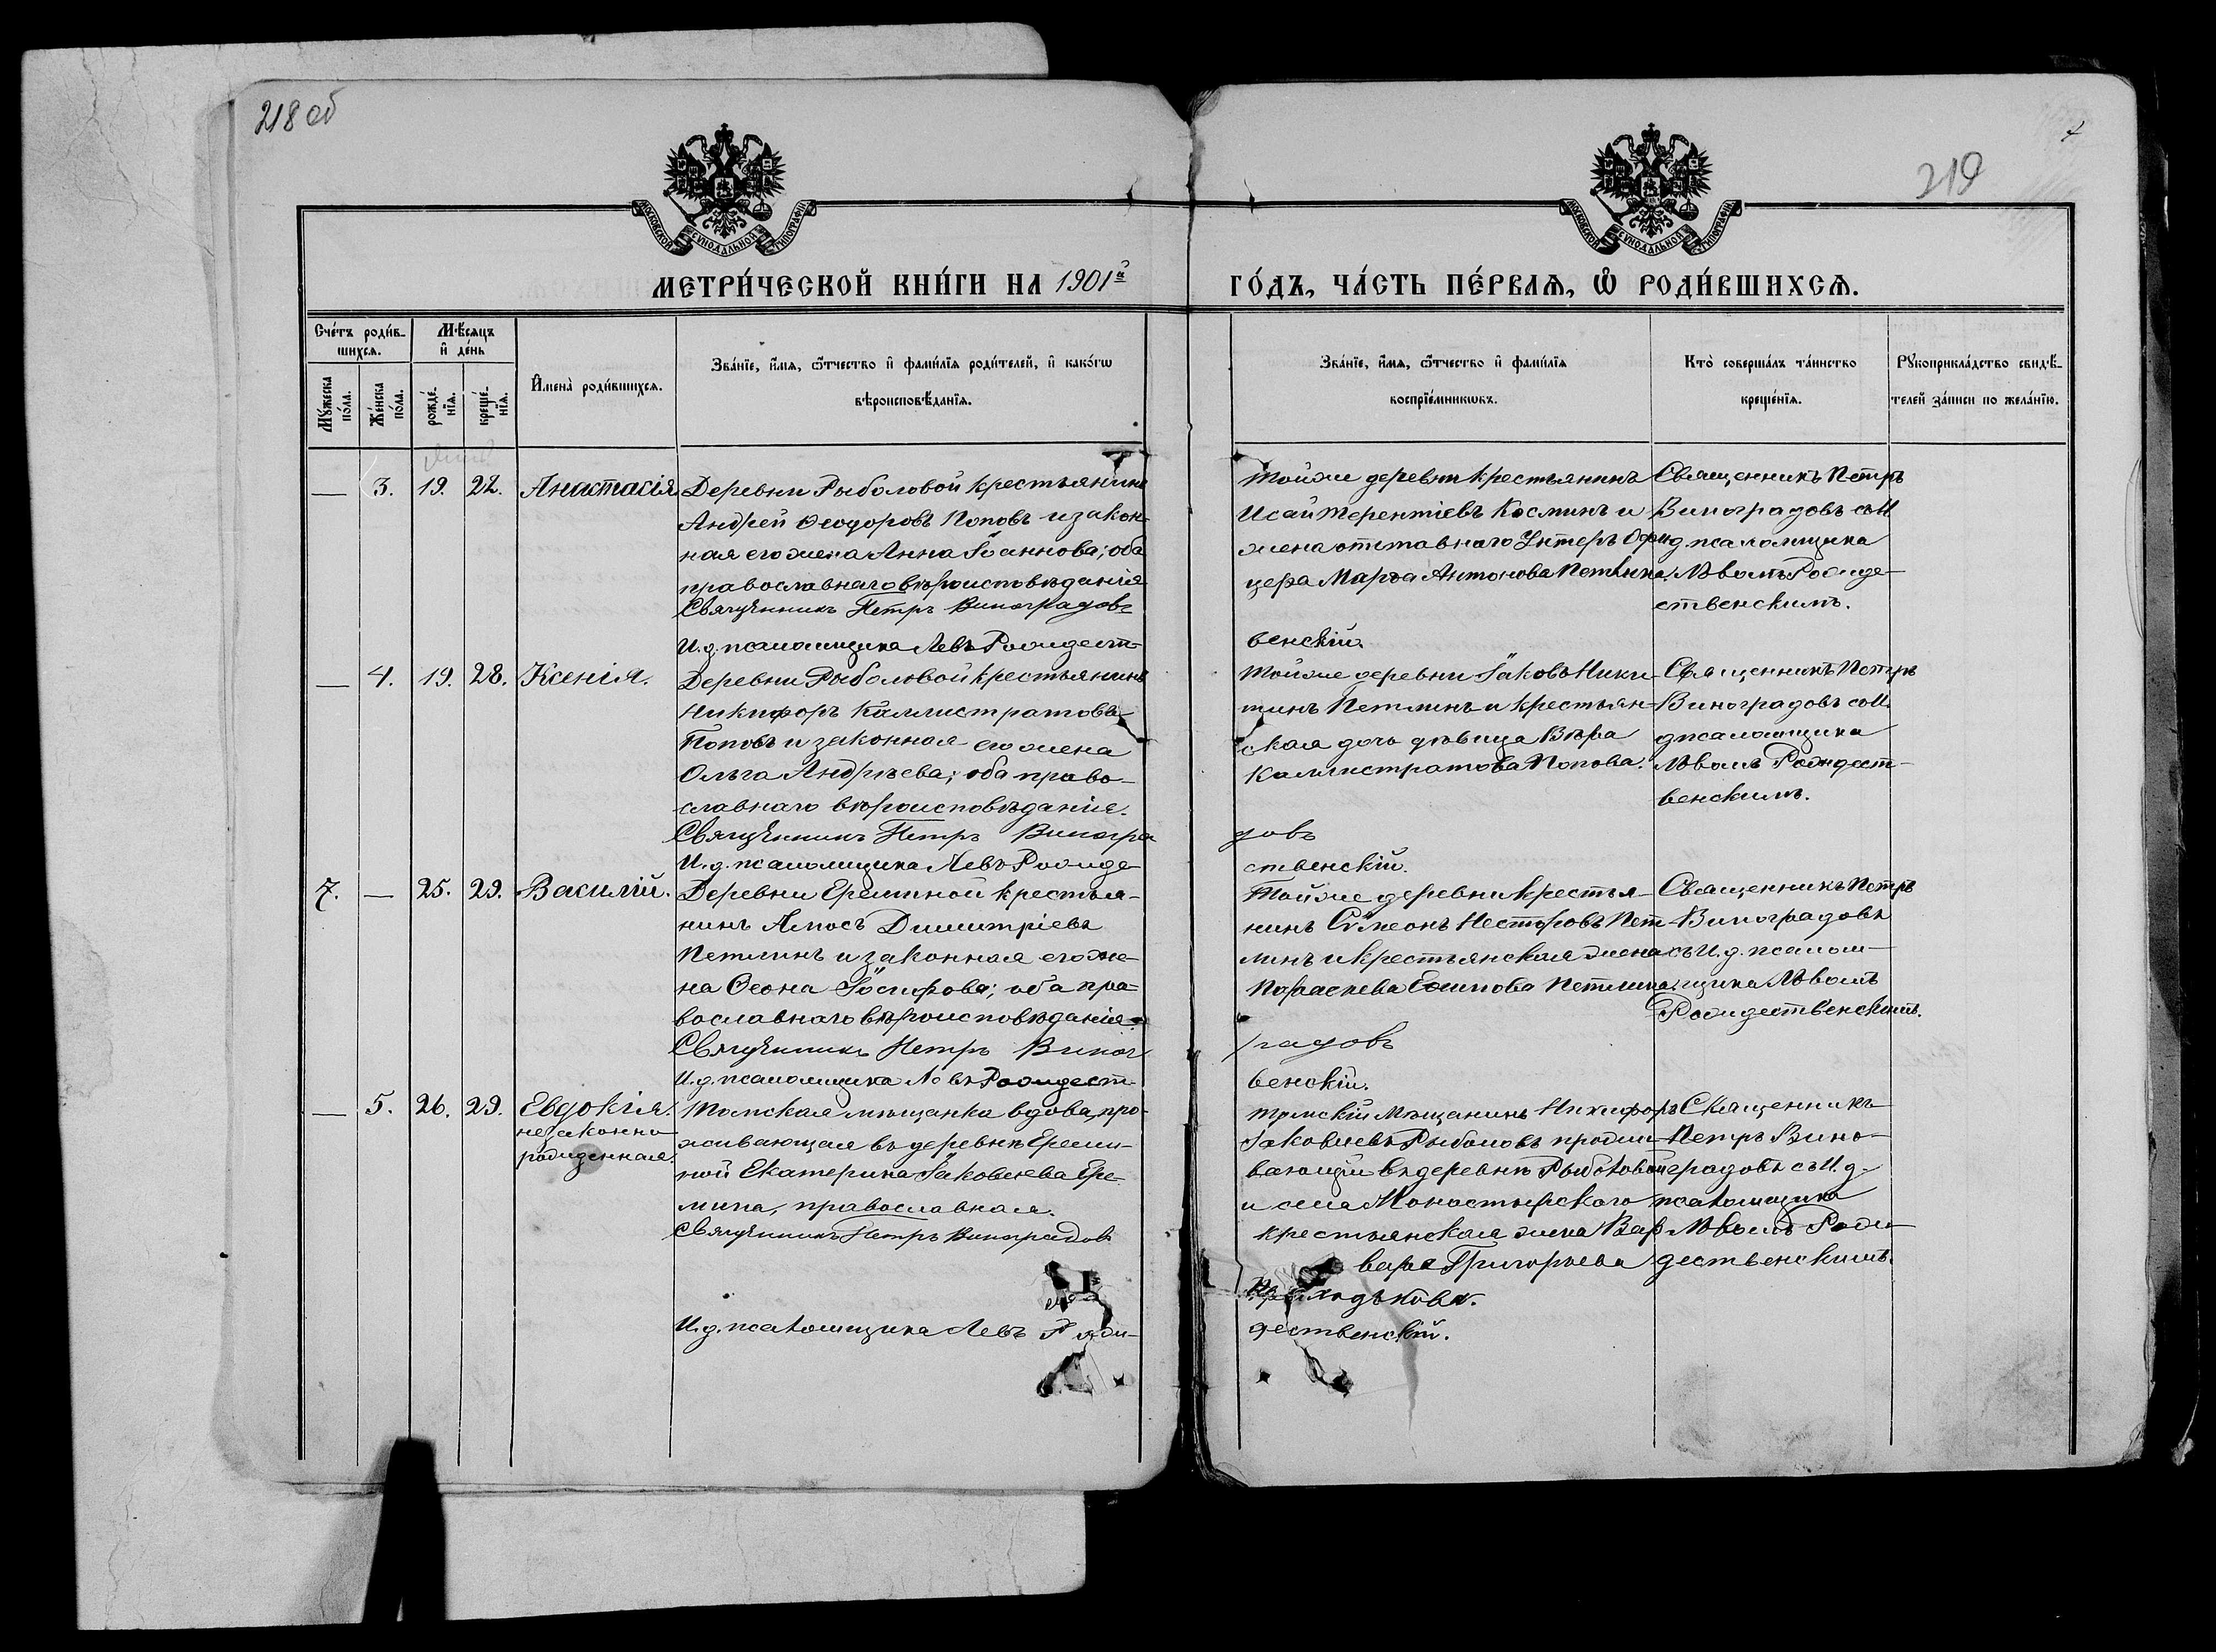 218 об
219
МОСКОВСКОЙ СУНОДАЛЬНОЙ ТИПОГРАФІИ
МОСКОВСКОЙ СУНОДАЛЬНОЙ ТИПОГРАФІИ
МЕТРИ́ЧЕСКОЙ КНИ́ГИ НА 1901й
ГО́ДЪ, ЧА́СТЬ ПЕ́РВАѦ, Ѽ РОДИ́ВШИХСѦ.
Сче́тъ роди́в-
шихсѧ.
Мꙋ́жеска по́ла.
Же́нска по́ла.
Мѣ́сяцъ
и҆ де́нь
рожде́-
нїѧ.
креще́-
нїѧ.
И҆мена̀ роди́вшихсѧ.
Зва́нїе, и҆́мѧ, ѻ҆́тчество и҆ фами́лїѧ роди́телей, и҆ како́гѡ
вѣроисповѣ́данїѧ.
Зва́нїе, и҆́мѧ, ѻ҆́тчество и҆ фами́лїѧ
воспрїе́мникѡвъ.
Кто̀ соверша́лъ та́инство
креще́нїѧ.
Рꙋкоприкла́дство свидѣ́-
телей за́писи по жела́нїю.
— 3. 19. 22. Анастасія
Деревни Рыболовой крестьянинъ
Андрей Ѳеодоровъ Поповъ и закон-
ная его жена Анна Іоаннова; оба
православнаго вѣроисповѣданія
Священникъ Петръ Виноградовъ
И.д. псаломщика Левъ Рождест-
венскій.
Тойже деревни крестьянинъ
Исай Терентіевъ Косминъ и
жена отставного Унтеръ Офи-
цера Марѳа Антонова Петлина
Священникъ Петръ
Виноградовъ съ И
д. псаломщика
Львомъ Рожде-
ственскимъ.
— 4. 19. 28. Ксенія.
Деревни Рыболовой крестьянинъ
Никифоръ Каллистратовъ
Поповъ и законная его жена
Ольга Андрѣева; оба право-
славнаго вѣроисповѣданія.
Священникъ Петръ Виногра
довъ
И.д. псаломщика Левъ Рожде
ственскій.
Тойже деревни Іаковъ Ники-
тинъ Петлинъ и крестьян-
ская дочь дѣвица Вѣра
Каллистратова Попова.
Священникъ Петръ
Виноградовъ съ И.
д псаломщика
Львомъ Рождест-
венскимъ.
7. — 25. 29. Василій.
Деревни Ереминой крестья-
нинъ Амосъ Димитріевъ
Петлинъ и законная его же-
на Ѳеона Іосифова; оба пра-
вославнаго вѣроисповѣданія.
Священникъ Петръ Виног
радовъ
И.д. псаломщика Левъ Рождест-
венскій.
Тойже деревни крестья-
нинъ Сѵмеонъ Несторовъ Пет-
линъ и крестьянская жена
Параскева Петлина.
Священникъ Петръ
Виноградовъ
съ И.д. псалом-
щика Львомъ
Рождественскимъ.
— 5. 26. 29. Евдокія.
незаконно-
рожденная.
Томская мѣщанка вдова, про-
живающая въ деревнѣ Ереми-
ной Екатерина Іаковлева Ере-
мина, православная.
Священникъ Петръ Виноградовъ
И.д. псаломщика Левъ Рож-
дественскій.
Томскій Мѣщанинъ Никифоръ
Іаковлевъ Рыболовъ прожи-
вающій въ деревнѣ Рыболовой
и села Монастырского
крестьянская жена Вар
вара Григорьева
Священникъ
Петръ Вино-
градовъ съ И.д.
псаломщика
Львомъ Рож-
дественскимъ.